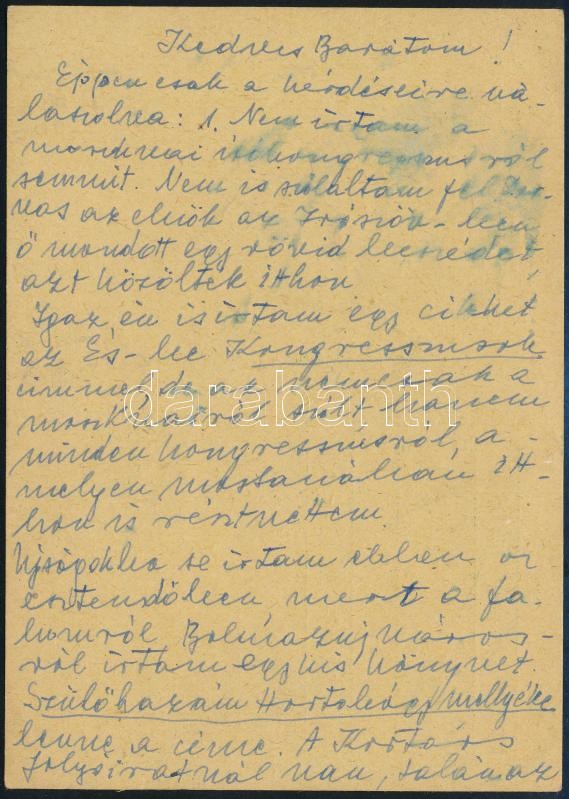 Kedves Barátom!
Éppen csak a kérdéseire vá-
laszolva: 1. Nem írtam a
moszkvai írókongresszusról
semmit. Nem is szólaltam fel. Dar-
vas az elnök az Írószöv-ben
ő mondott egy rövid beszédet,
azt közölték itthon
Igaz, én is írtam egy cikket
az És-be Kongresszusok
címmel de az nemcsak a
moszkvairól szólt hanem
minden kongresszusról, a-
melyen mostanában itt-
hon is résztvettem.
Ujságokba se írtam ebben az
esztendőben mert a fa-
lumról Balmazujváros-
ról írtam egy kis könyvet.
Szülőhazám Hortobágy mellyéke
lenne a címe. A Kortárs
folyóiratnál van, talán az
darabanth